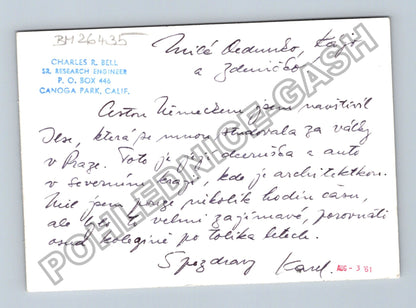 BM26435
CHARLES R. BELL
SR. RESEARCH ENGINEER
P. O. BOX 446
CANOGA PARK, CALIF.
Milá Ďedunko, Kájo
a Zdeničko
Cestou Německem jsem navštívil
Ilse, která se mnou studovala za války
v Praze. Toto je její dceruška a auto
v severním kraji, kde je architektkou.
Měl jsem pouze několik hodin času,
ale bylo to velmi zajímavé, porovnati
osud kolegině po tolika letech.
Spozdravy Karel.
AUG - 3 '81
POHLEDNICE-GASH